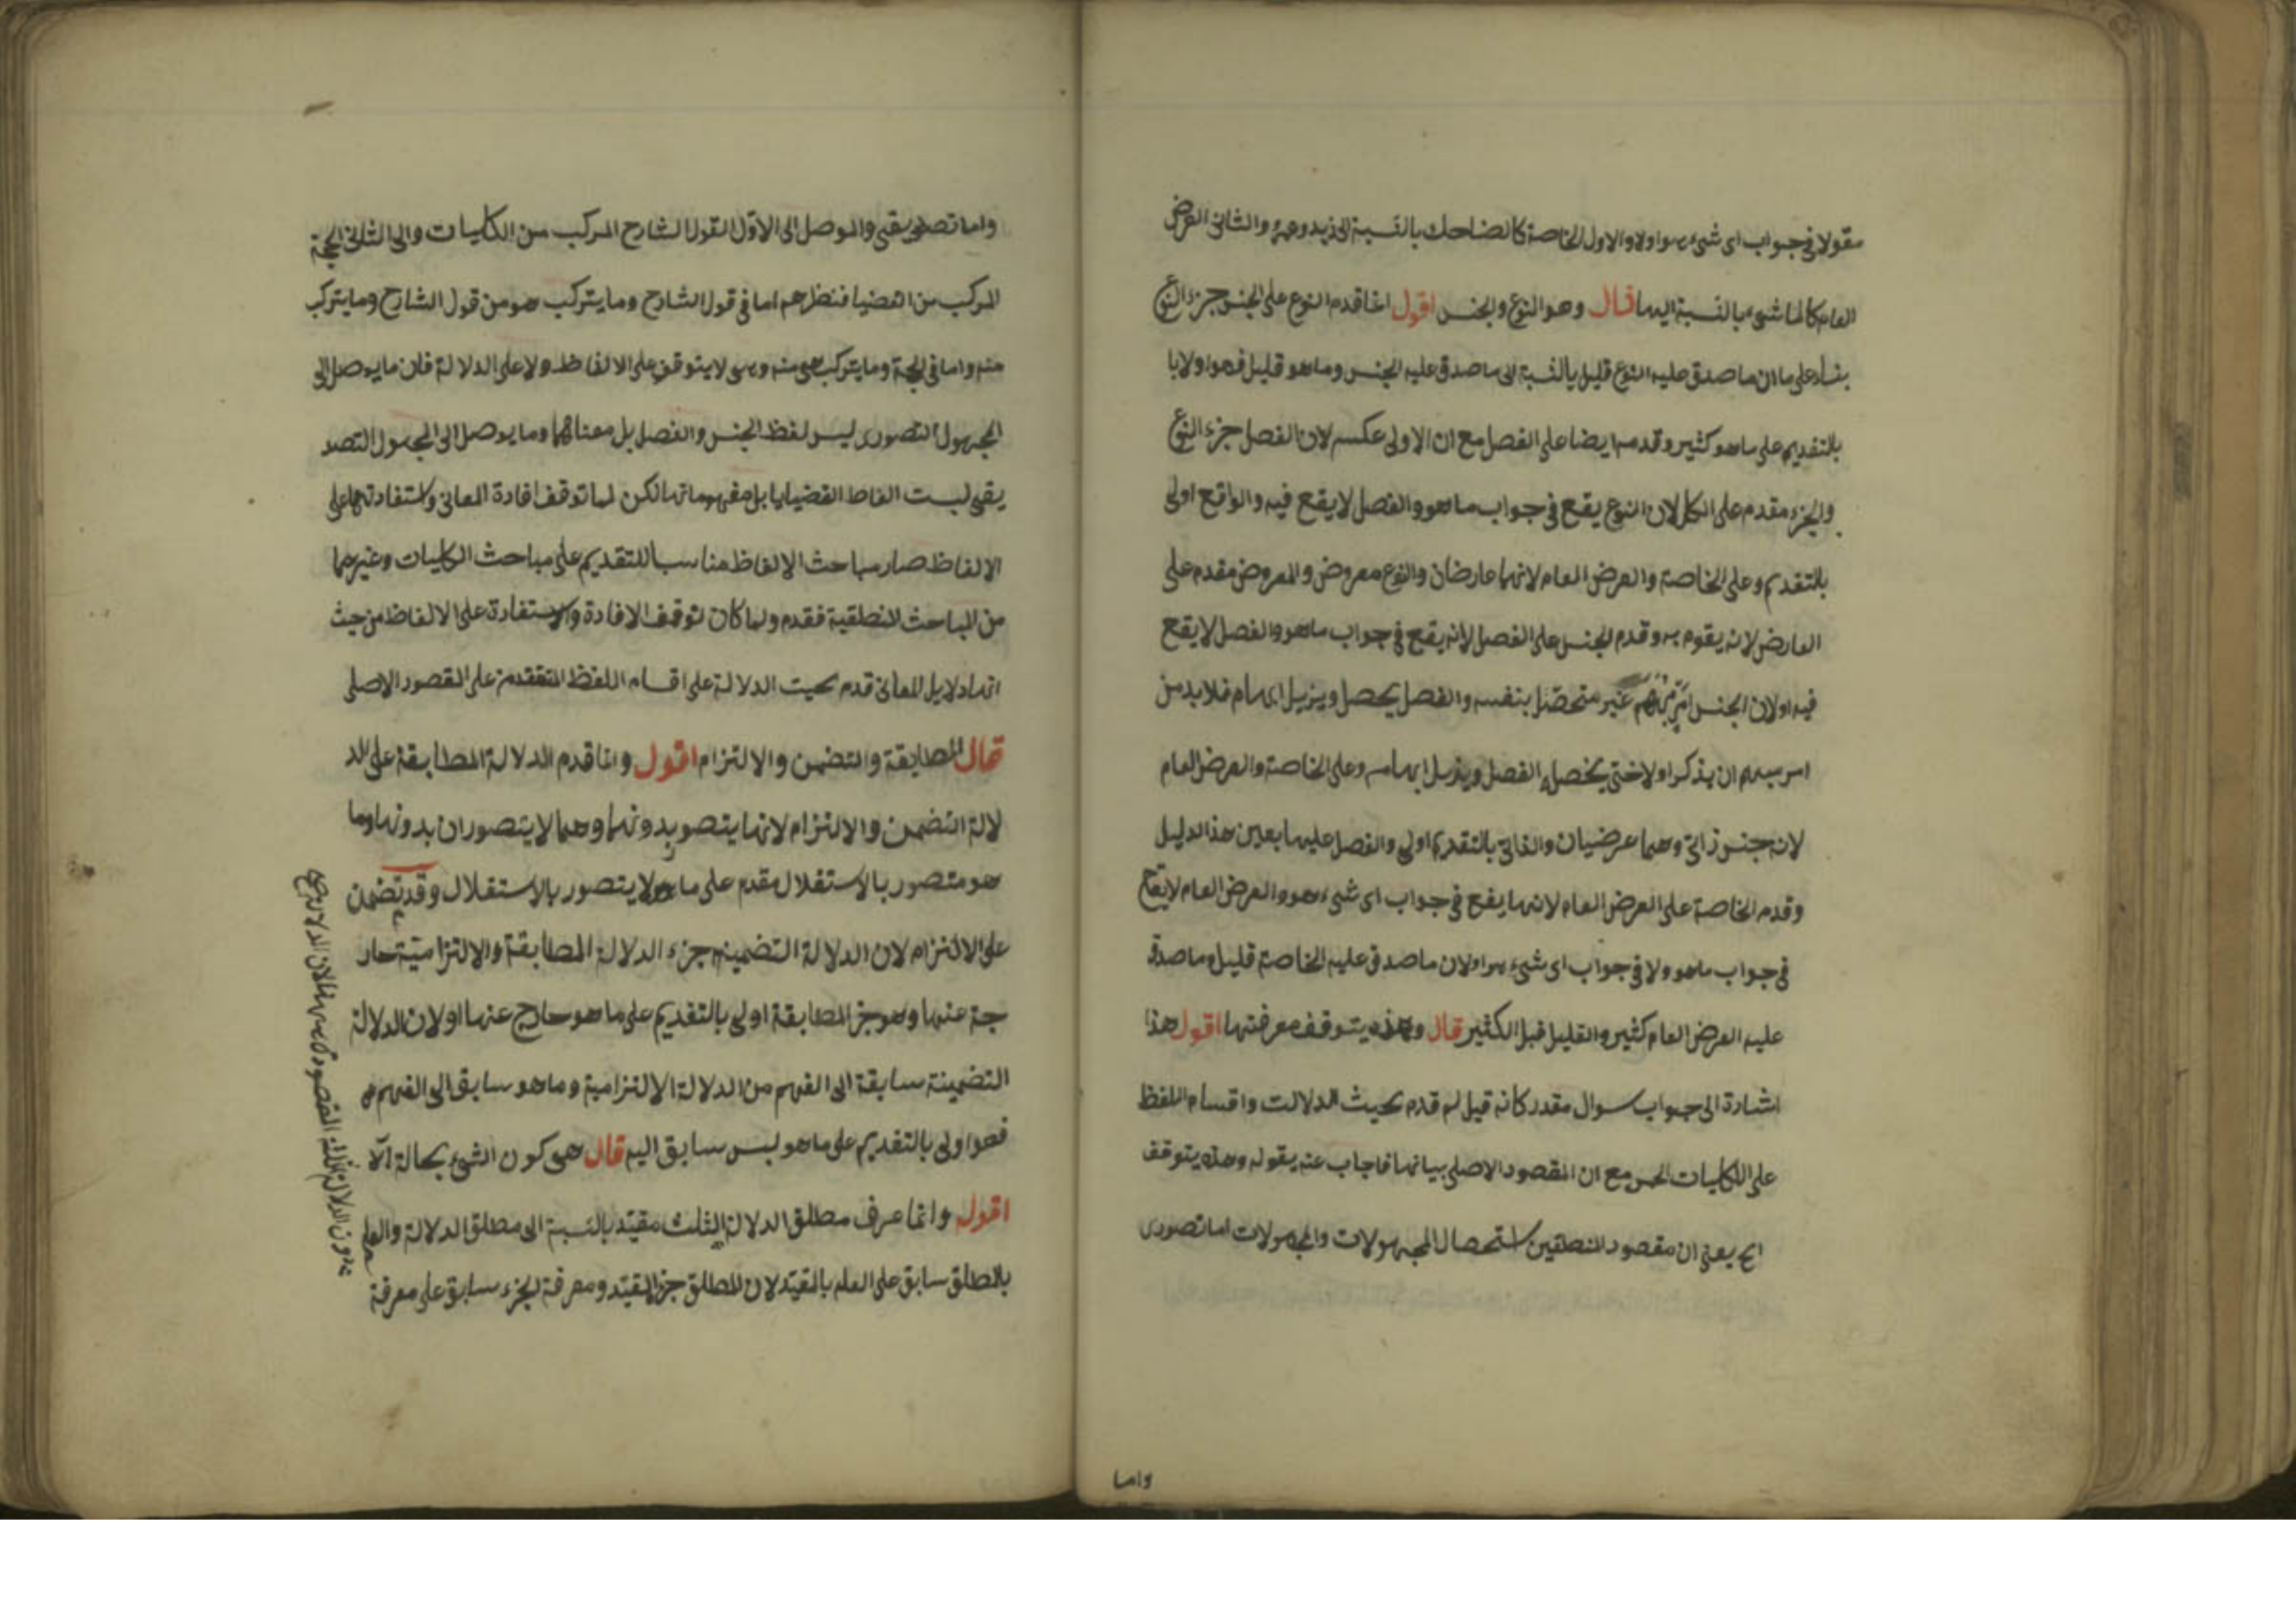 مقولا فى جواب اى شىء هو اولا والاول الخاصة كالضاحك بالنسبة الى زيد وعمرو والثانى العرض
العام كالماشى بالنسبة اليهما قال وهو النوع والجنس اقول انما قدم النوع على الجنس جزء النوع
بناء على ما ان ما صدق عليه النوع قليل بالنسبة الى ما صدق عليه الجنس وما هو قليل فهو اولا با
بالتقديم على ما هو كثير وقدمه ايضا على الفصل مع ان الاولى عكسه لان الفصل جزء النوع
والجزء مقدم على الكل لان النوع يقع فى جواب ما هو والفصل لا يقع فيه والواقع اولى
بالتقديم وعلى الخاصة والعرض العام لانهما عارضان والنوع معروض والمعروض مقدم على
العارض لانه يقوم به وقدم الجنس على الفصل لانه يقع فى جواب ما هو والفصل لا يقع
فيه او لان الجنس امر مبهم غير متحصل بنفسه والفصل يحصل ويزيل ابهام فلا بد من
امر مبهم ان يذكر اولا حتى يحصل الفصل ويزيل ابهامه وعلى الخاصة والعرض العام
لانه جنس ذاتى وهما عرضيان والذاتى بالتقديم اولى والفصل عليهما بعين هذا الدليل
وقدم الخاصة على العرض العام لانها يقع فى جواب اى شىء هو والعرض العام لا يقع
فى جواب ما هو ولا فى جواب اى شىء هو او لان ما صدق عليه الخاصة قليل وما صدق
عليه العرض العام كثير والقليل قبل الكثير قال وهذه يتوقف معرفتها اقول هذا
اشارة الى جواب سوال مقدر كانه قيل لم قدم بحيث الدلالت واقسام اللفظ
على الكليات الخمس مع ان المقصود الاصلى بيانها فاجاب عنه يقوله وهذه يتوقف
الخ يعنى ان مقصود المنطقين استحصال المجهولات والمجهولات اما تصورى
واما
واما تصديقى والموصل الى الاول القول الشارح المركب من الكليات والى الثانى الحجة
المركب من القضيا فنظرهم اما فى قول الشارح وما يتركب هو من قول الشارح وما يتركب
منه واما فى الحجة وما يتركب هى منه وهى لا يتوقف على الالفاظ ولا على الدلالة فان ما يوصل الى
المجهول التصورى ليس لفظ الجنس والفصل بل معناهما وما يوصل الى المجهول التصد
يقى ليست الفاظ القضيايا بل مفهوماتها لكن لما توقف افادة المعانى واستفادتهما على
الالفاظ صار مباحث الالفاظ مناسبا للتقديم على مباحث الكليات وغيرهما
من المباحث المنطقية فقدم ولما كان توقف الافادة والاستفادة على الالفاظ من حيث
انها دلايل المعانى قدم بحيت الدلالة على اقسام اللفظ المتقدمة على المقصود الاصلى
قال المطابقة والتضمن والالتزام اقول وانما قدم الدلالة المطابقة على الد
لالة التضمن والالتزام لانها يتصور بدونهما وهما لا يتصوران بدونها وما
هو متصور بالاستقلال مقدم على ما هو لا يتصور بالاستقلال وقد تضمن
على الالتزام لان الدلالة التضمينه جزء الدلالة المطابقة والالتزامية خار
جة عنها وهو جزء المطابقة اولى بالتقديم على ما هو خارج عنها او لان الدلالة
التضمينة سابقة الى الفهم من الدلالة الالتزامية وما هو سابق الى الفهم
فهو اولى بالتقديم على ما هو ليس سابق اليه قال هى كون الشىء بحالة الآ
اقول وانما عرف مطلق الدلالة الثلث مقيد بالنسبة الى مطلق الدلالة والعلم
بالمطلق سابق على العلم بالمقيد لان المطلق جزء المقيد ومعرفة الجزء سابق على معرفة